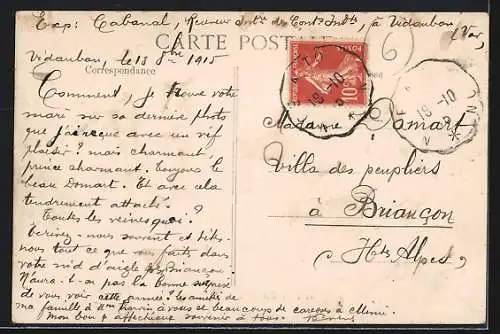 Exp: Cabanal, Receveur des Contons Indtes, à Vidauban
(Var)
CARTE POSTALE
Vidauban, le 18 8bre 1915
Correspondance
POSTES
REPUBLIQUE FRANÇAISE
10c
18-10
18-10
6
Comment, je trouve votre
mari sur sa dernière photo
que j'ai reçue avec un vif
plaisir? mais charmant
prince charmant. Toujours le
beau Domart. Et avec cela
tendrement attaché.
Toutes les veines quoi?
Ecrivez-nous souvent et dites-
nous tout ce que vous faites dans
votre nid d'aigle de Briançon
N'aura-t-on pas la bonne surprise
de vous voir cette année? les amitiés de
ma famille à Mme à vous et beaucoup de caresses à Mimi
mon bon & affectueux souvenir à tous.
Madame Domart
Villa des peupliers
à Briançon
(Htes Alpes)